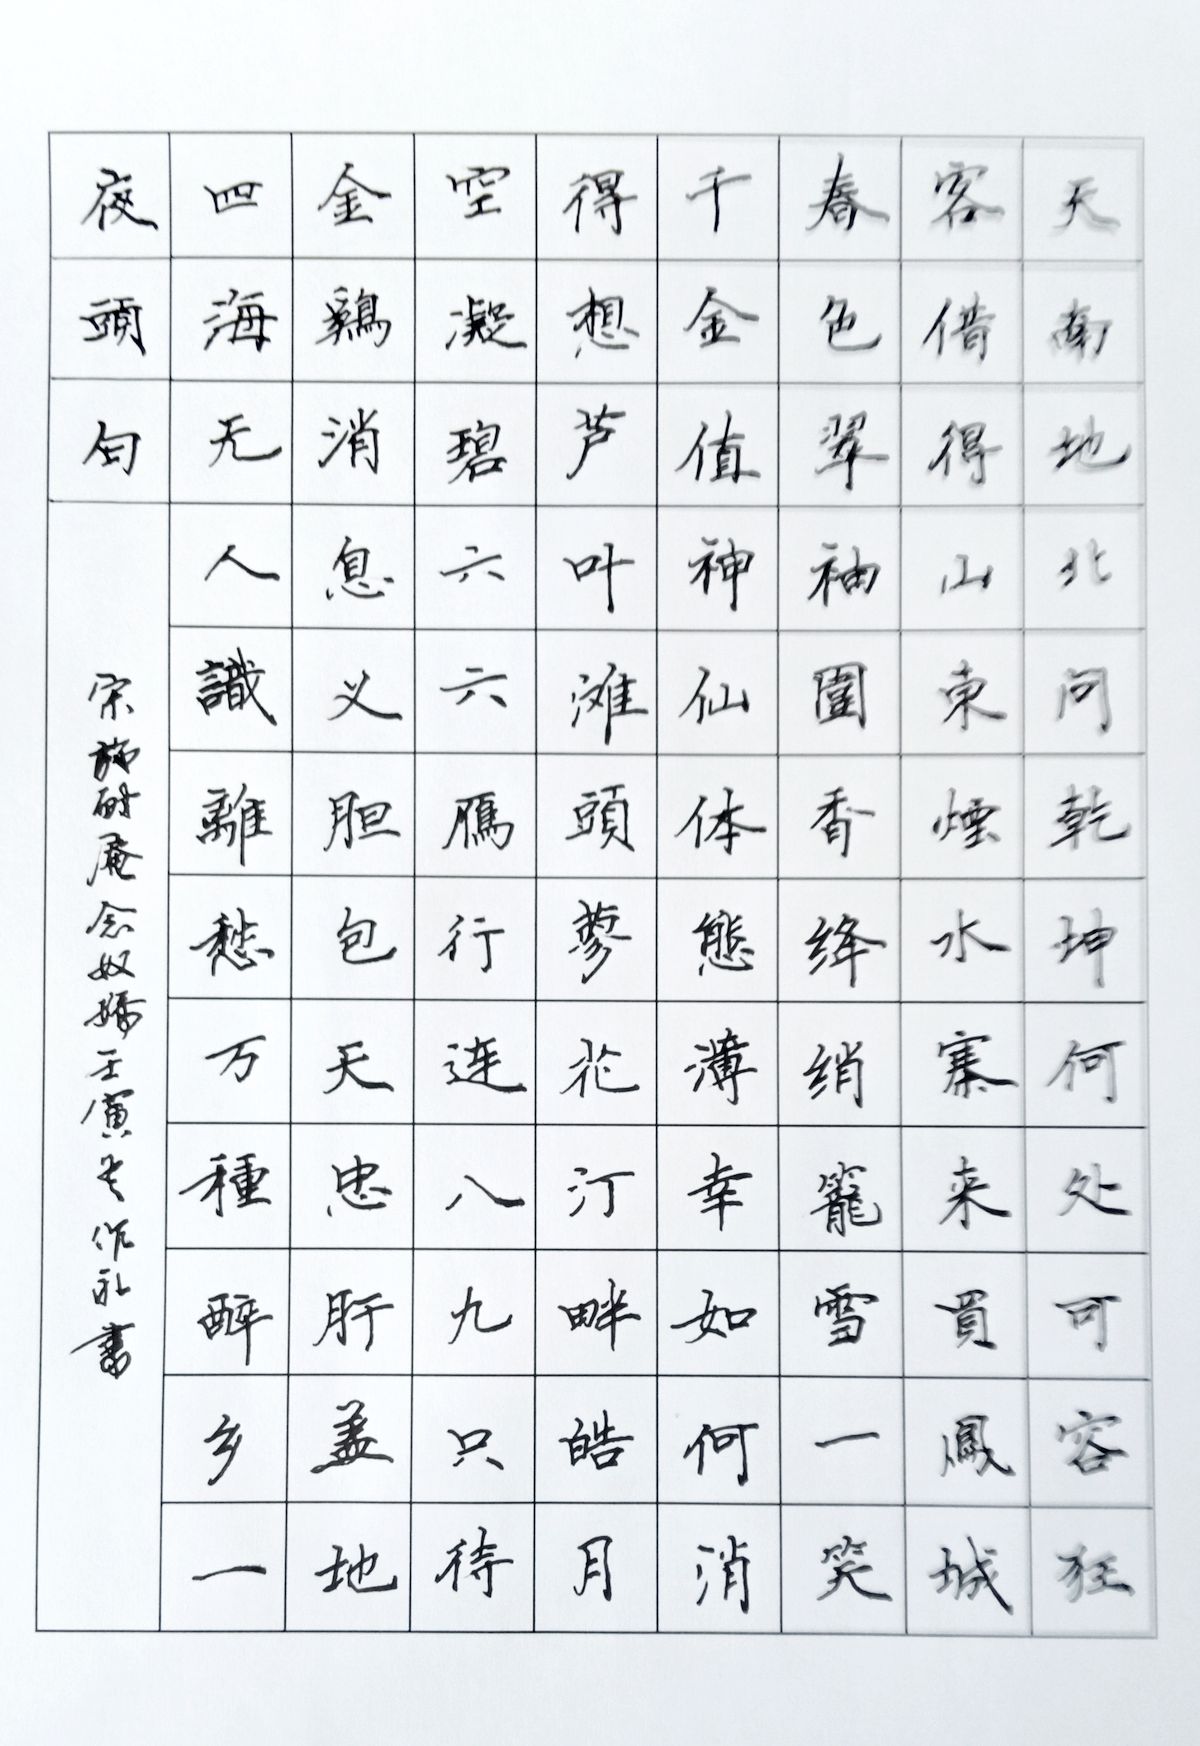 天南地北问乾坤何处可容狂
客借得山東煙水寨来買鳳城
春色翠袖圍香绛绡籠雪一笑
千金值神仙体態薄幸如何消
得想芦叶滩頭蓼花汀畔皓月
空凝碧六六鴈行连八九只待
金鷄消息义胆包天忠肝盖地
四海无人識離愁万种醉乡一
夜頭白
宋施耐庵念奴嬌壬寅冬作礼書